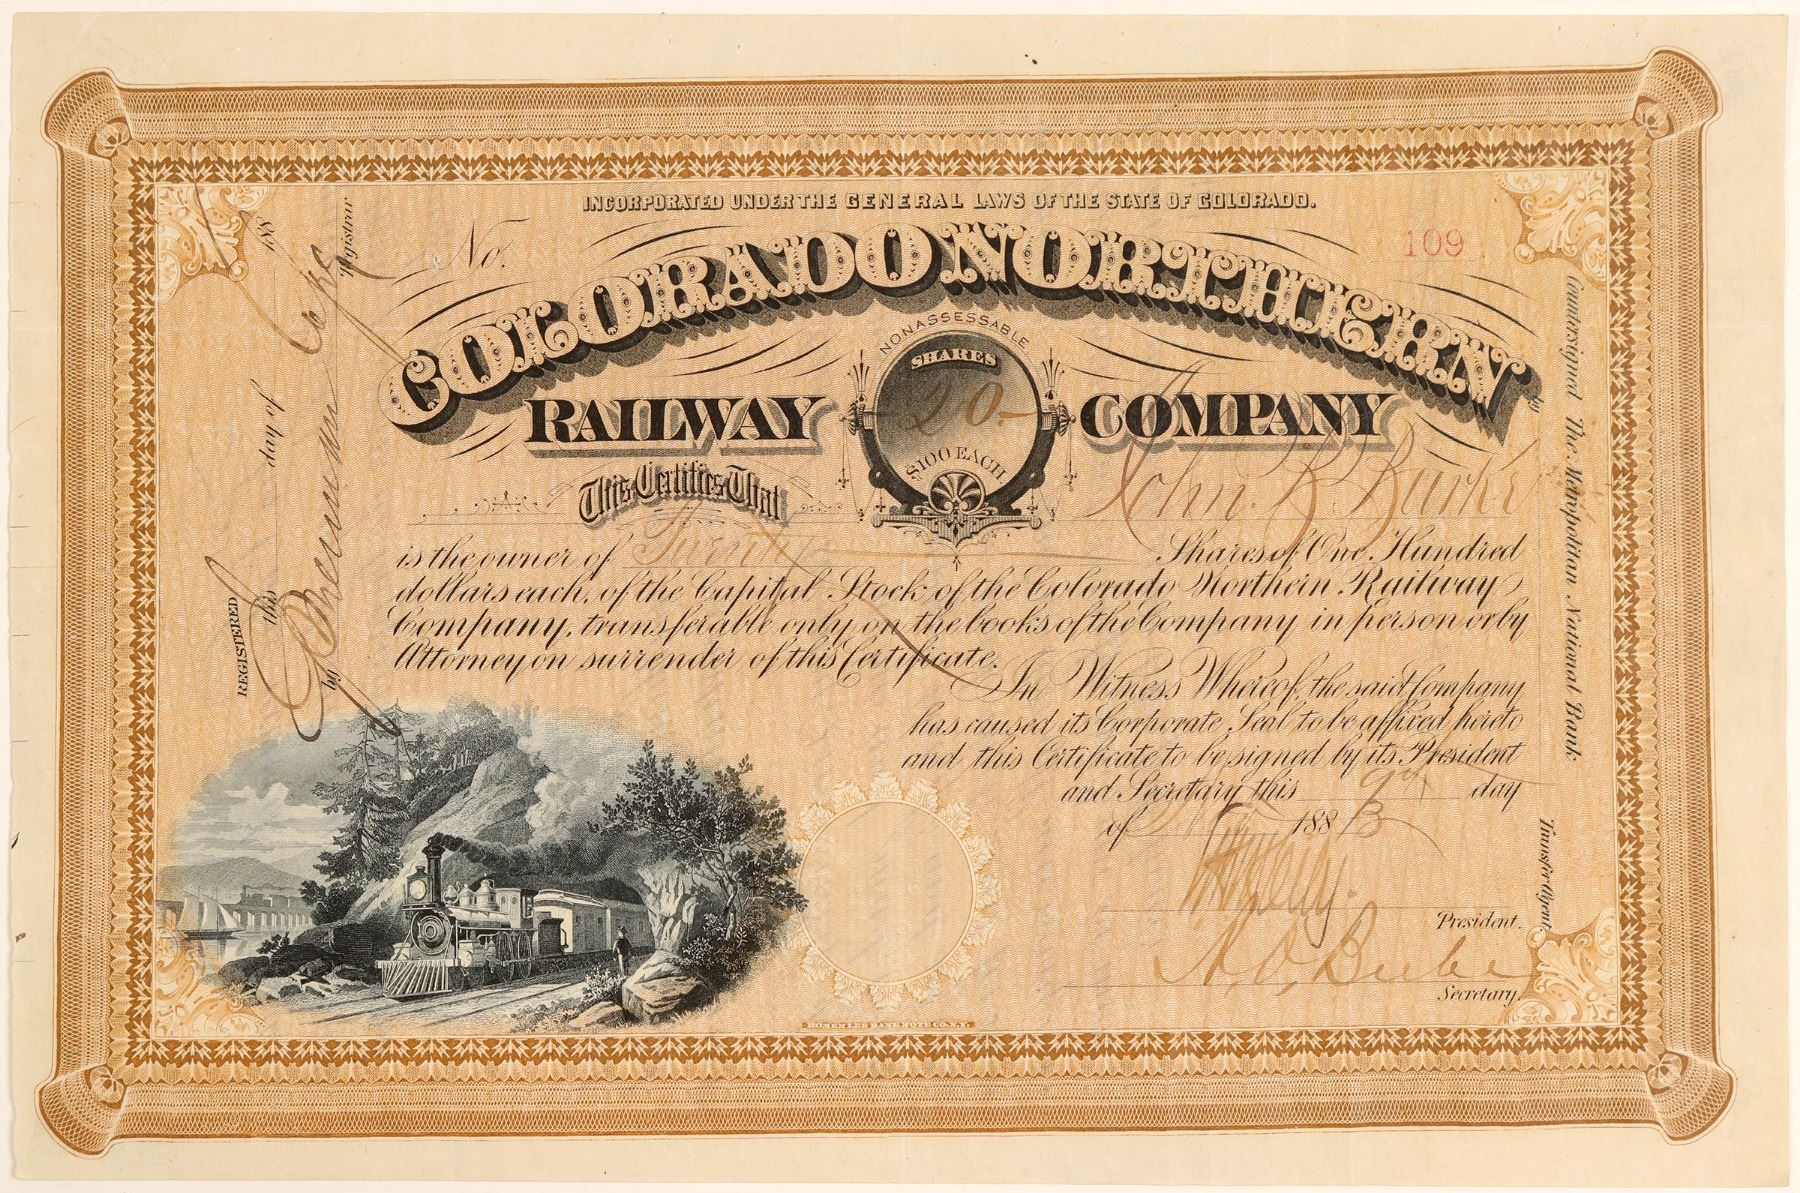 INCORPORATED UNDER THE GENERAL LAWS OF THE STATE OF COLORADO.
No. 109
COLORADO NORTHERN
RAILWAY COMPANY
NONASSESSABLE
SHARES
20
$100 EACH
This Certifies That John R Burke
is the owner of Twenty Shares of One Hundred
dollars each, of the Capital Stock of the Colorado Northern Railway
Company, transferable only on the books of the Company in person or by
Attorney on surrender of this Certificate.
In Witness Whereof, the said Company
has caused its Corporate Seal to be affixed hereto
and this Certificate to be signed by its President
and Secretary this 9th day
of 1883
President.
Secretary.
HOMER LEE BANK NOTE CO. N.Y.
REGISTERED
this day of 188
by Registrar
Countersigned The Metropolitan National Bank
by Transfer Agent.